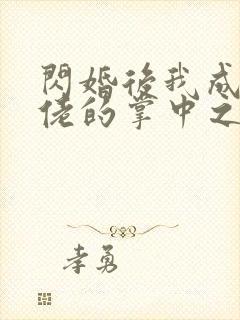 閃婚後我成
佬的掌中之
幸勇